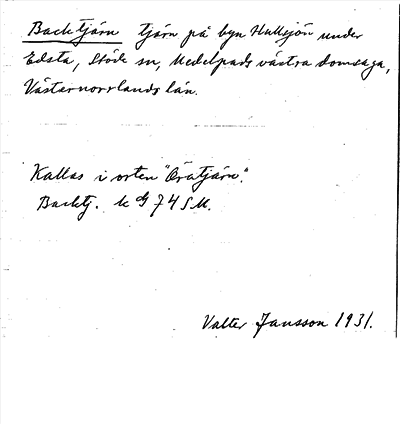 Backtjärn tjärn på byn Hullsjön under
Edsta, Stöde sn, Medelpads västra domsaga,
Västernorrlands län.
Kallas i orten "Öratjärn".
Backtj. k G 74 S M.
Valter Jansson 1931.